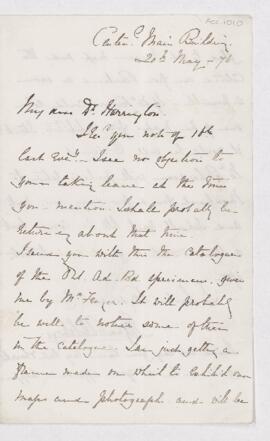 Acc.1010
Centen.l Main Building
20th May - 76
My dear Dr Harrington
I recd your note of 18th
last Eveg. I see no objection to
your taking leave at the time
you mention. I shall probably be
returning about that time.
I send you with this the catalogue
of the specimens given
me by Mr It will probably
be well to notice some of them
in the catalogue. I am just getting a
frame made on which to exhibit our
maps and photograph and will be